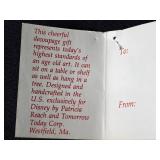 This cheerful
decoupage gift
represents today's
highest standards of
an age old art. It can
sit on a table or shelf
as well as hang in a
tree. Designed and
handcrafted in the
U.S. exclusively for
Disney by Patricia
Reach and Tomorrow
Today Corp.
Westfield, Ma.
To:
From: